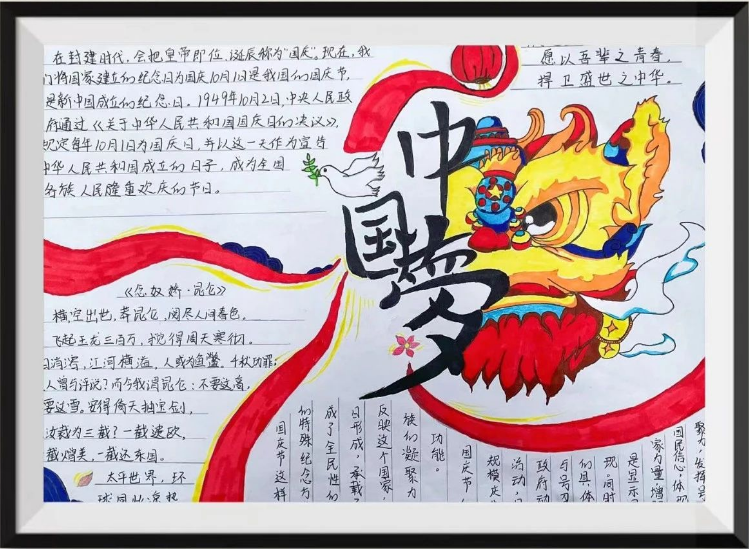 在封建时代,会把皇帝即位、诞辰称为"国庆"。现在,我
们将国家建立的纪念日为国庆10月1日是我国的国庆节,
是新中国成立的纪念日。1949年10月2日,中央人民政
府通过《关于中华人民共和国国庆日的决议》,
规定每年10月1日为国庆日,并以这一天作为宣告
中华人民共和国成立的日子,成为全国
各族人民隆重欢庆的节日。
愿以吾辈之青春,
捍卫盛世之中华。
中国梦
《念奴娇·昆仑》
横空出世,莽昆仑,阅尽人间春色,
飞起玉龙三百万,搅得周天寒彻。
消溶,江河横溢,人或为鱼鳖,千秋功罪,
人曾与评说?而今我谓昆仑:不要这高,
要这雪。安得倚天抽宝剑,
汝裁为三截?一截遗欧,
截赠美,一截还东国。
太平世界,环
球同此凉热
聚力,发挥
国民信心,体现
家力量,增
是显示
现。同时
们具体
与号
政府动
活动,
规模庆
国庆节,
功能。
族们凝聚力
反映这个国家、
日形式,承载了
成了全民性的
的特殊纪念方
国庆节这样